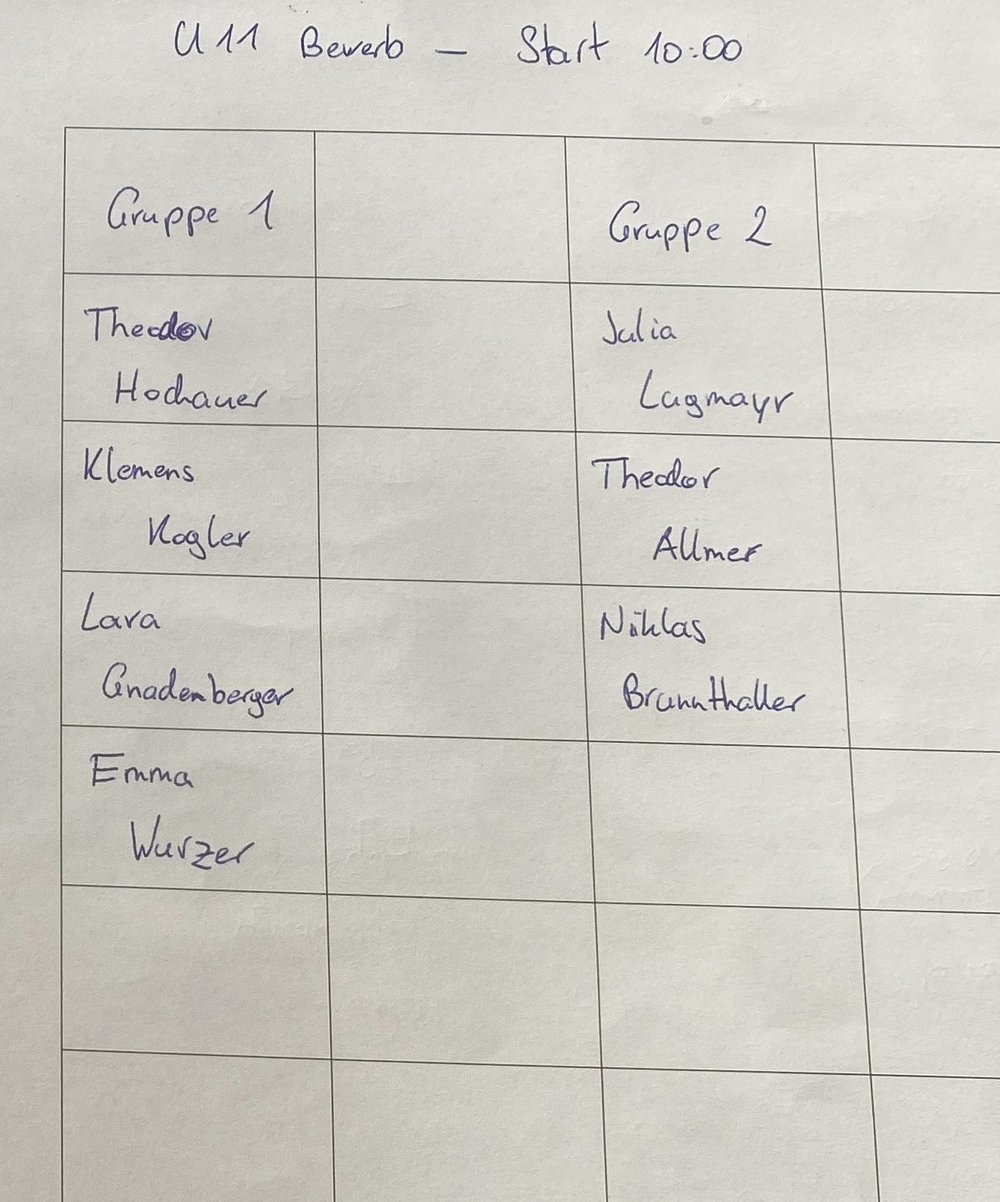 U11 Bewerb – Start 10:00
Gruppe 1
Gruppe 2
Theodor
Hochauer
Julia
Lugmayr
Klemens
Kogler
Theodor
Allmer
Lara
Gnadenberger
Niklas
Brunnthaller
Emma
Wurzer